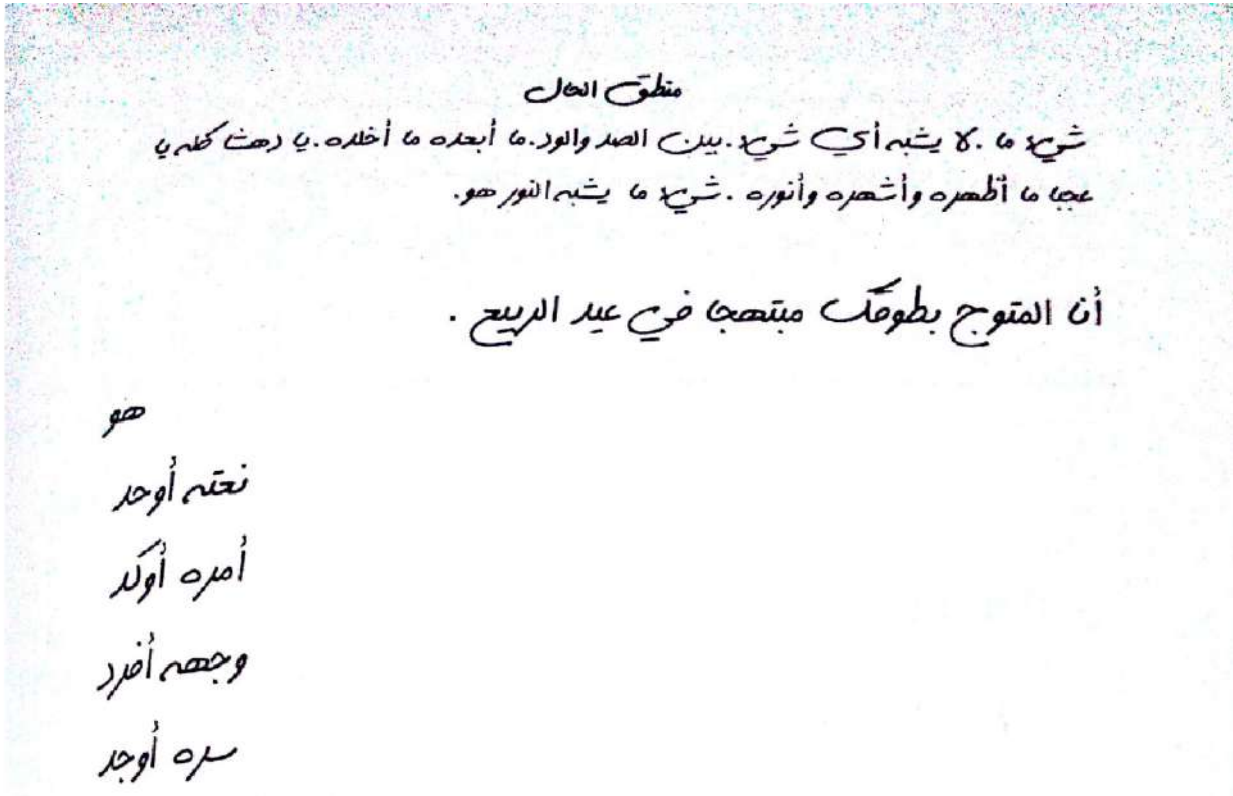 منطق الحال
شيء ما .لا يشبه أي شيء .بين الصد والود.ما أبعده ما أخلده.يا دهشا كله يا
عجبا ما أظهره وأشهره وأنوره .شيء ما يشبه النور هو.
أنا المتوج بطوقك مبتهجا في عيد الربيع .
هو
نعته أوحد
أمره أوكد
وجهه أفرد
سره أوجد